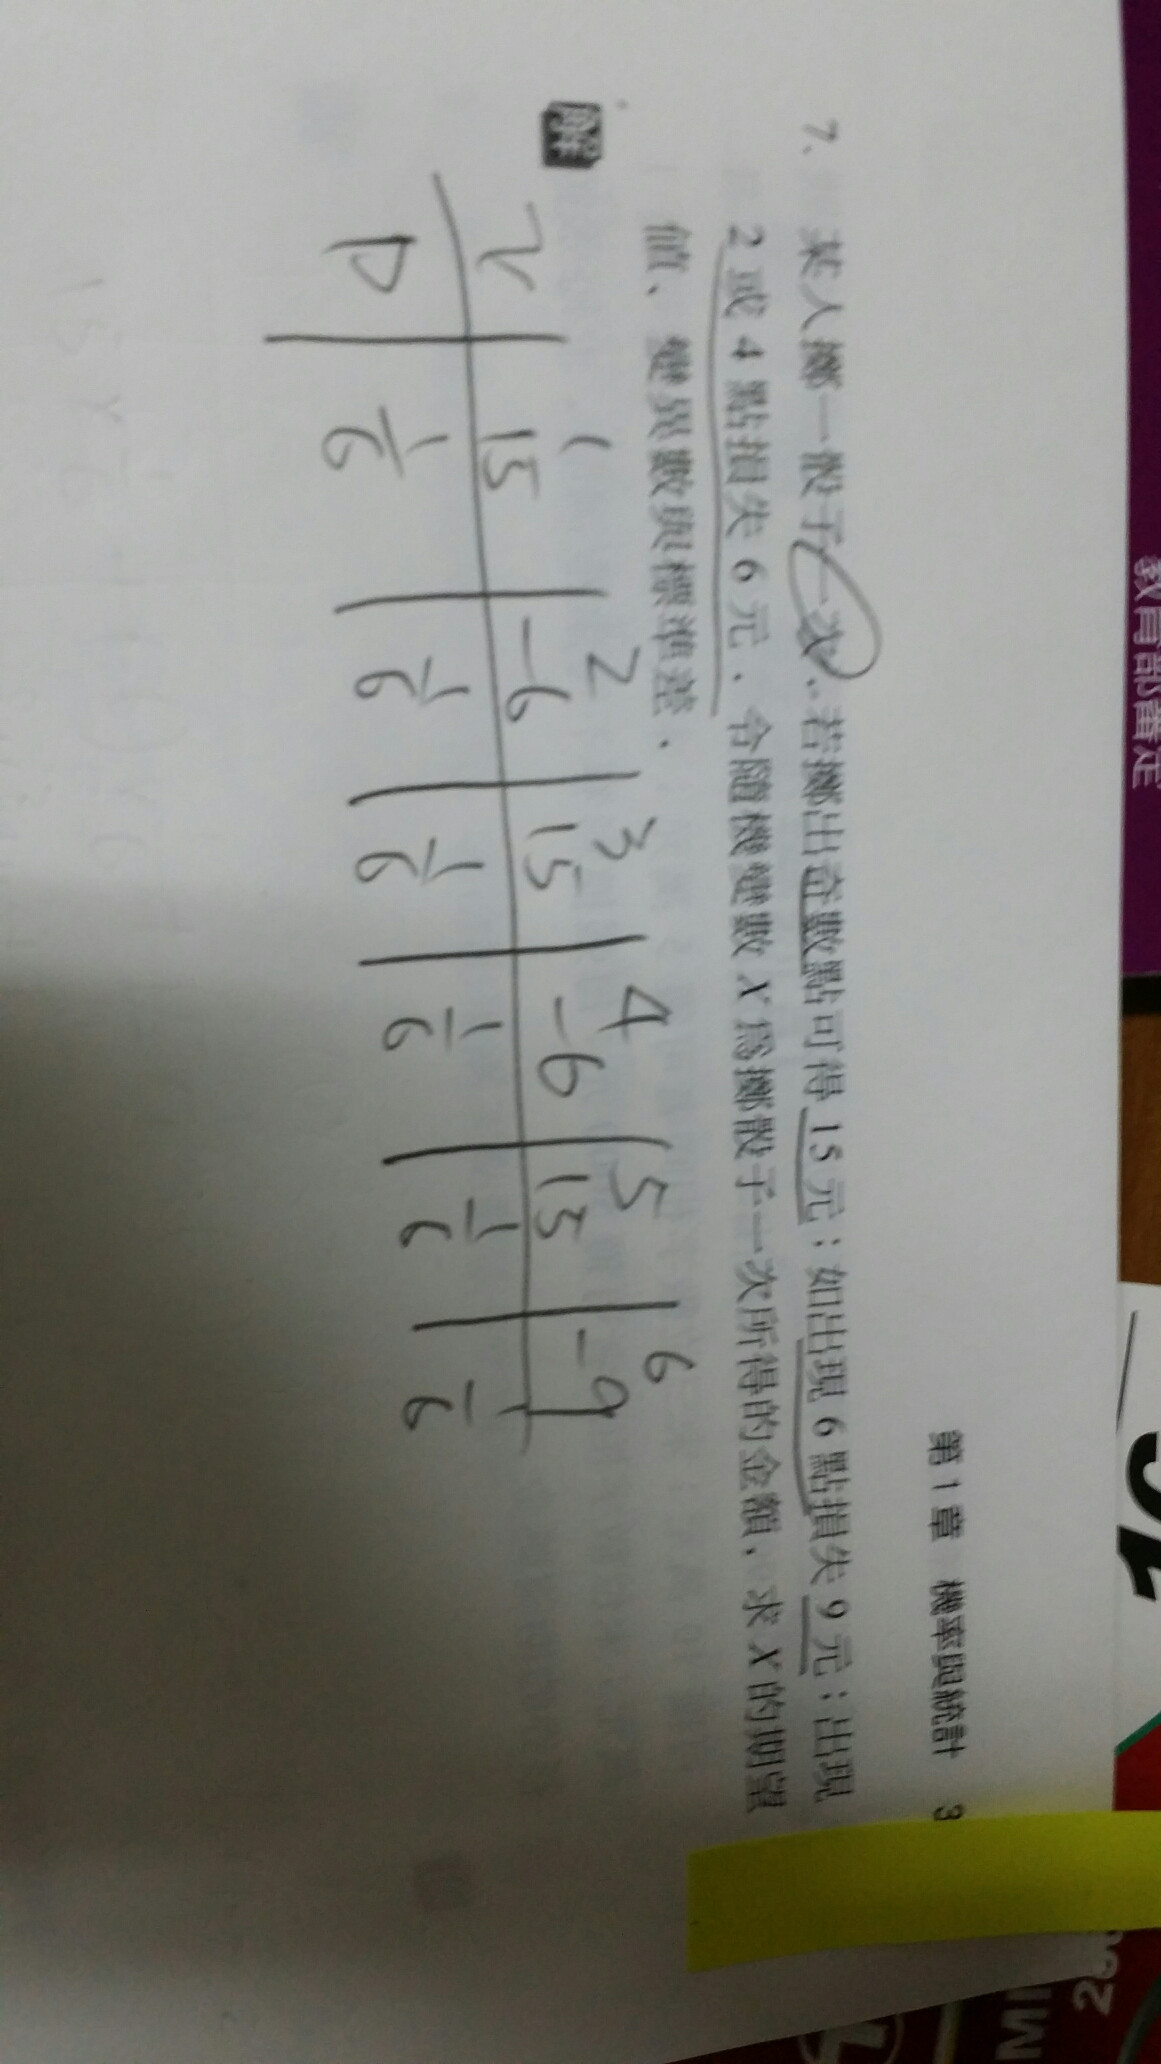 第1章 機率與統計 3
7. 某人擲一骰子一次.若擲出奇數點可得 15 元;如出現 6 點損失 9 元;出現
2 或 4 點損失 6 元.令隨機變數 X 為擲骰子一次所得的金額,求 X 的期望
值、變異數與標準差.
解
1 2 3 4 5 6
x 15 -6 15 -6 15 -9
p 1/6 1/6 1/6 1/6 1/6 1/6
教育部審定